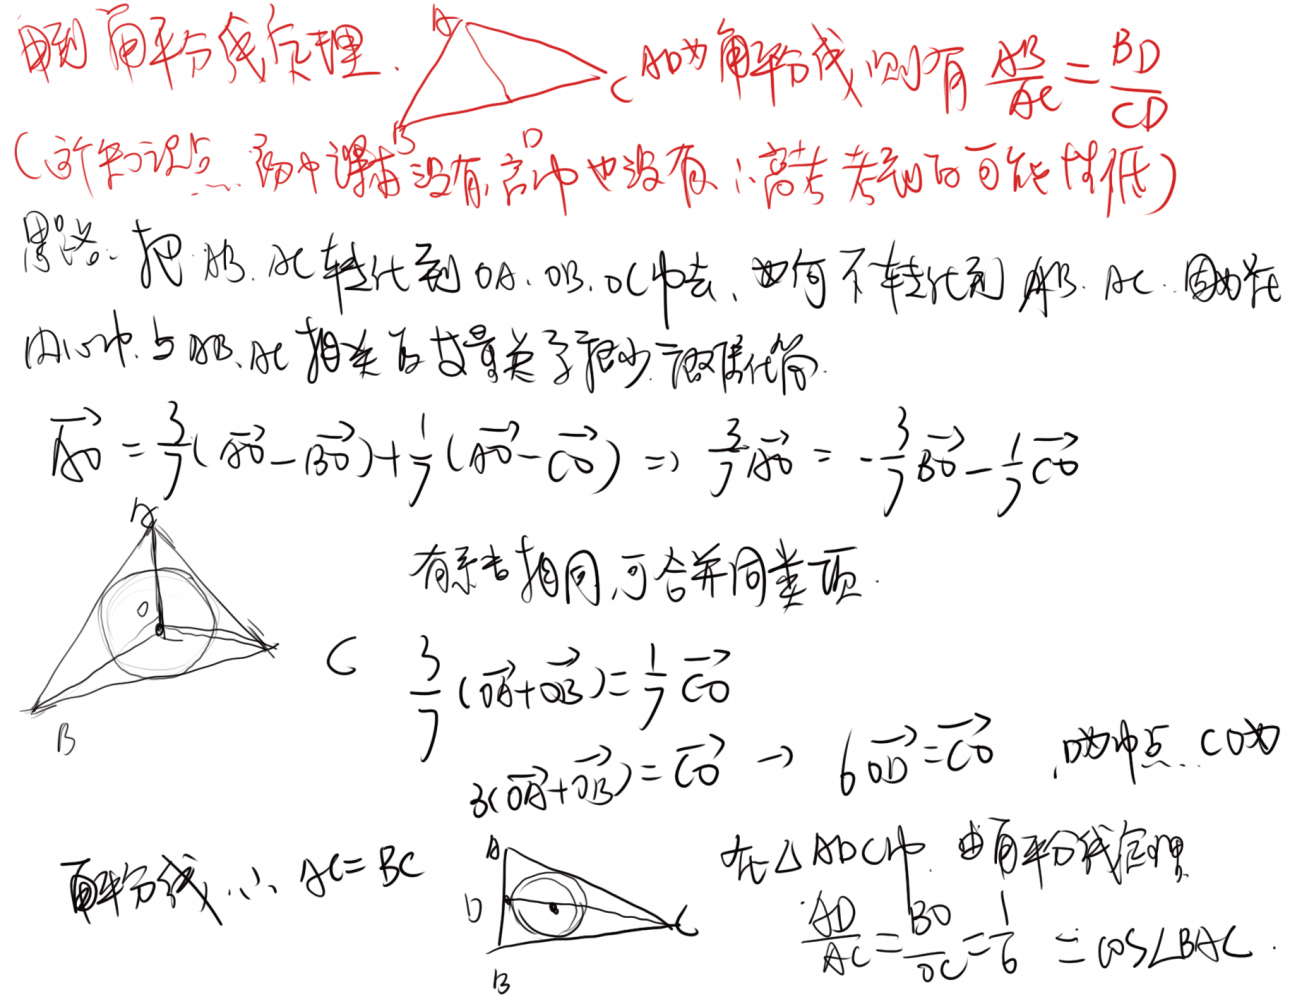 用到角平分线定理. AD为角平分线则有 AB/AC = BD/CD
A
B
C
D
(这个知识点 初中课本没有,高中也没有∴高考考到的可能性低)
思路. 把 AB. AC转化到OA. OB. OC中去, 如何不转化到 AB. AC. 因为在
内心中与AB. AC 相关的 关系很少 化简.
→AO = 3/7(→AO-→BO)+1/7(→AO-→CO) => 3/7→AO = -3/7→BO-1/7→CO
有系数相同,可合并同类项.
A
O
B
C
3/7(→OA+→OB)=1/7→CO
3(→OA+→OB)=→CO → 6→OD=→CO ,D为中点 CD为
角平分线 ∴ AC=BC
A
D
B
C
在△ADC中 由角平分线定理
AD/AC=BO/OC=1/6 = cos∠BAC.